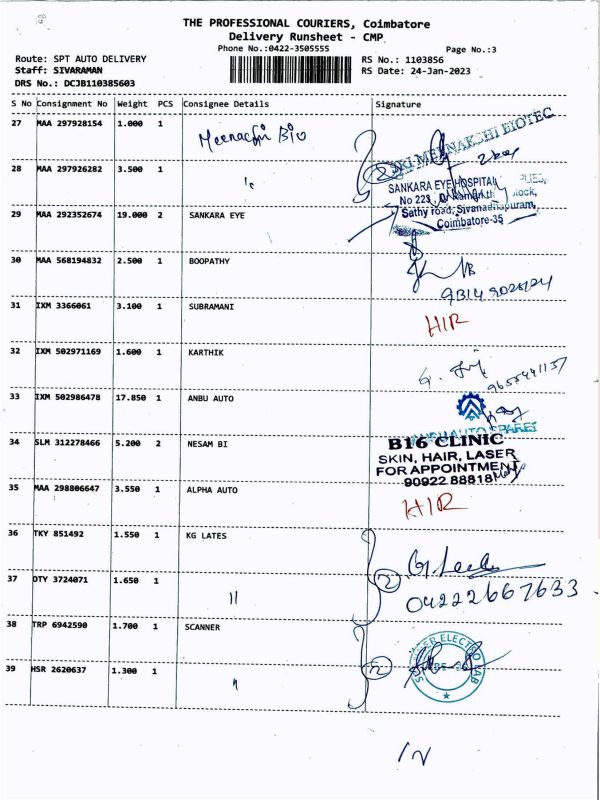 THE PROFESSIONAL COURIERS, Coimbatore
Delivery Runsheet - CMP
Phone No.:0422-3505555
Page No.:3
Route: SPT AUTO DELIVERY
RS No.: 1103856
Staff: SIVARAMAN
RS Date: 24-Jan-2023
DRS No.: DCJB110385603
S No Consignment No Weight PCS Consignee Details Signature
27 MAA 297928154 1.000 1 Meenachi Bio
SRI MEENAKSHI BIOTEC
28 MAA 297926282 3.500 1 "
2
SANKARA EYE HOSPITAL
No 223,
Sathy road, Sivanadhapuram,
Coimbatore-35
29 MAA 292352674 19.000 2 SANKARA EYE
30 MAA 568194832 2.500 1 BOOPATHY
31 IXM 3366061 3.100 1 SUBRAMANI
HIR
32 IXM 502971169 1.600 1 KARTHIK
33 IXM 502986478 17.850 1 ANBU AUTO
AUTO SPARES
34 SLM 312278466 5.200 2 NESAM BI
B16 CLINIC
SKIN, HAIR, LASER
FOR APPOINTMENT
90922 88818
35 MAA 298806647 3.550 1 ALPHA AUTO
HIR
36 TKY 851492 1.550 1 KG LATES
37 DTY 3724071 1.650 1 "
2
04222667633
38 TRP 6942590 1.700 1 SCANNER
39 HSR 2620637 1.300 1 "
2